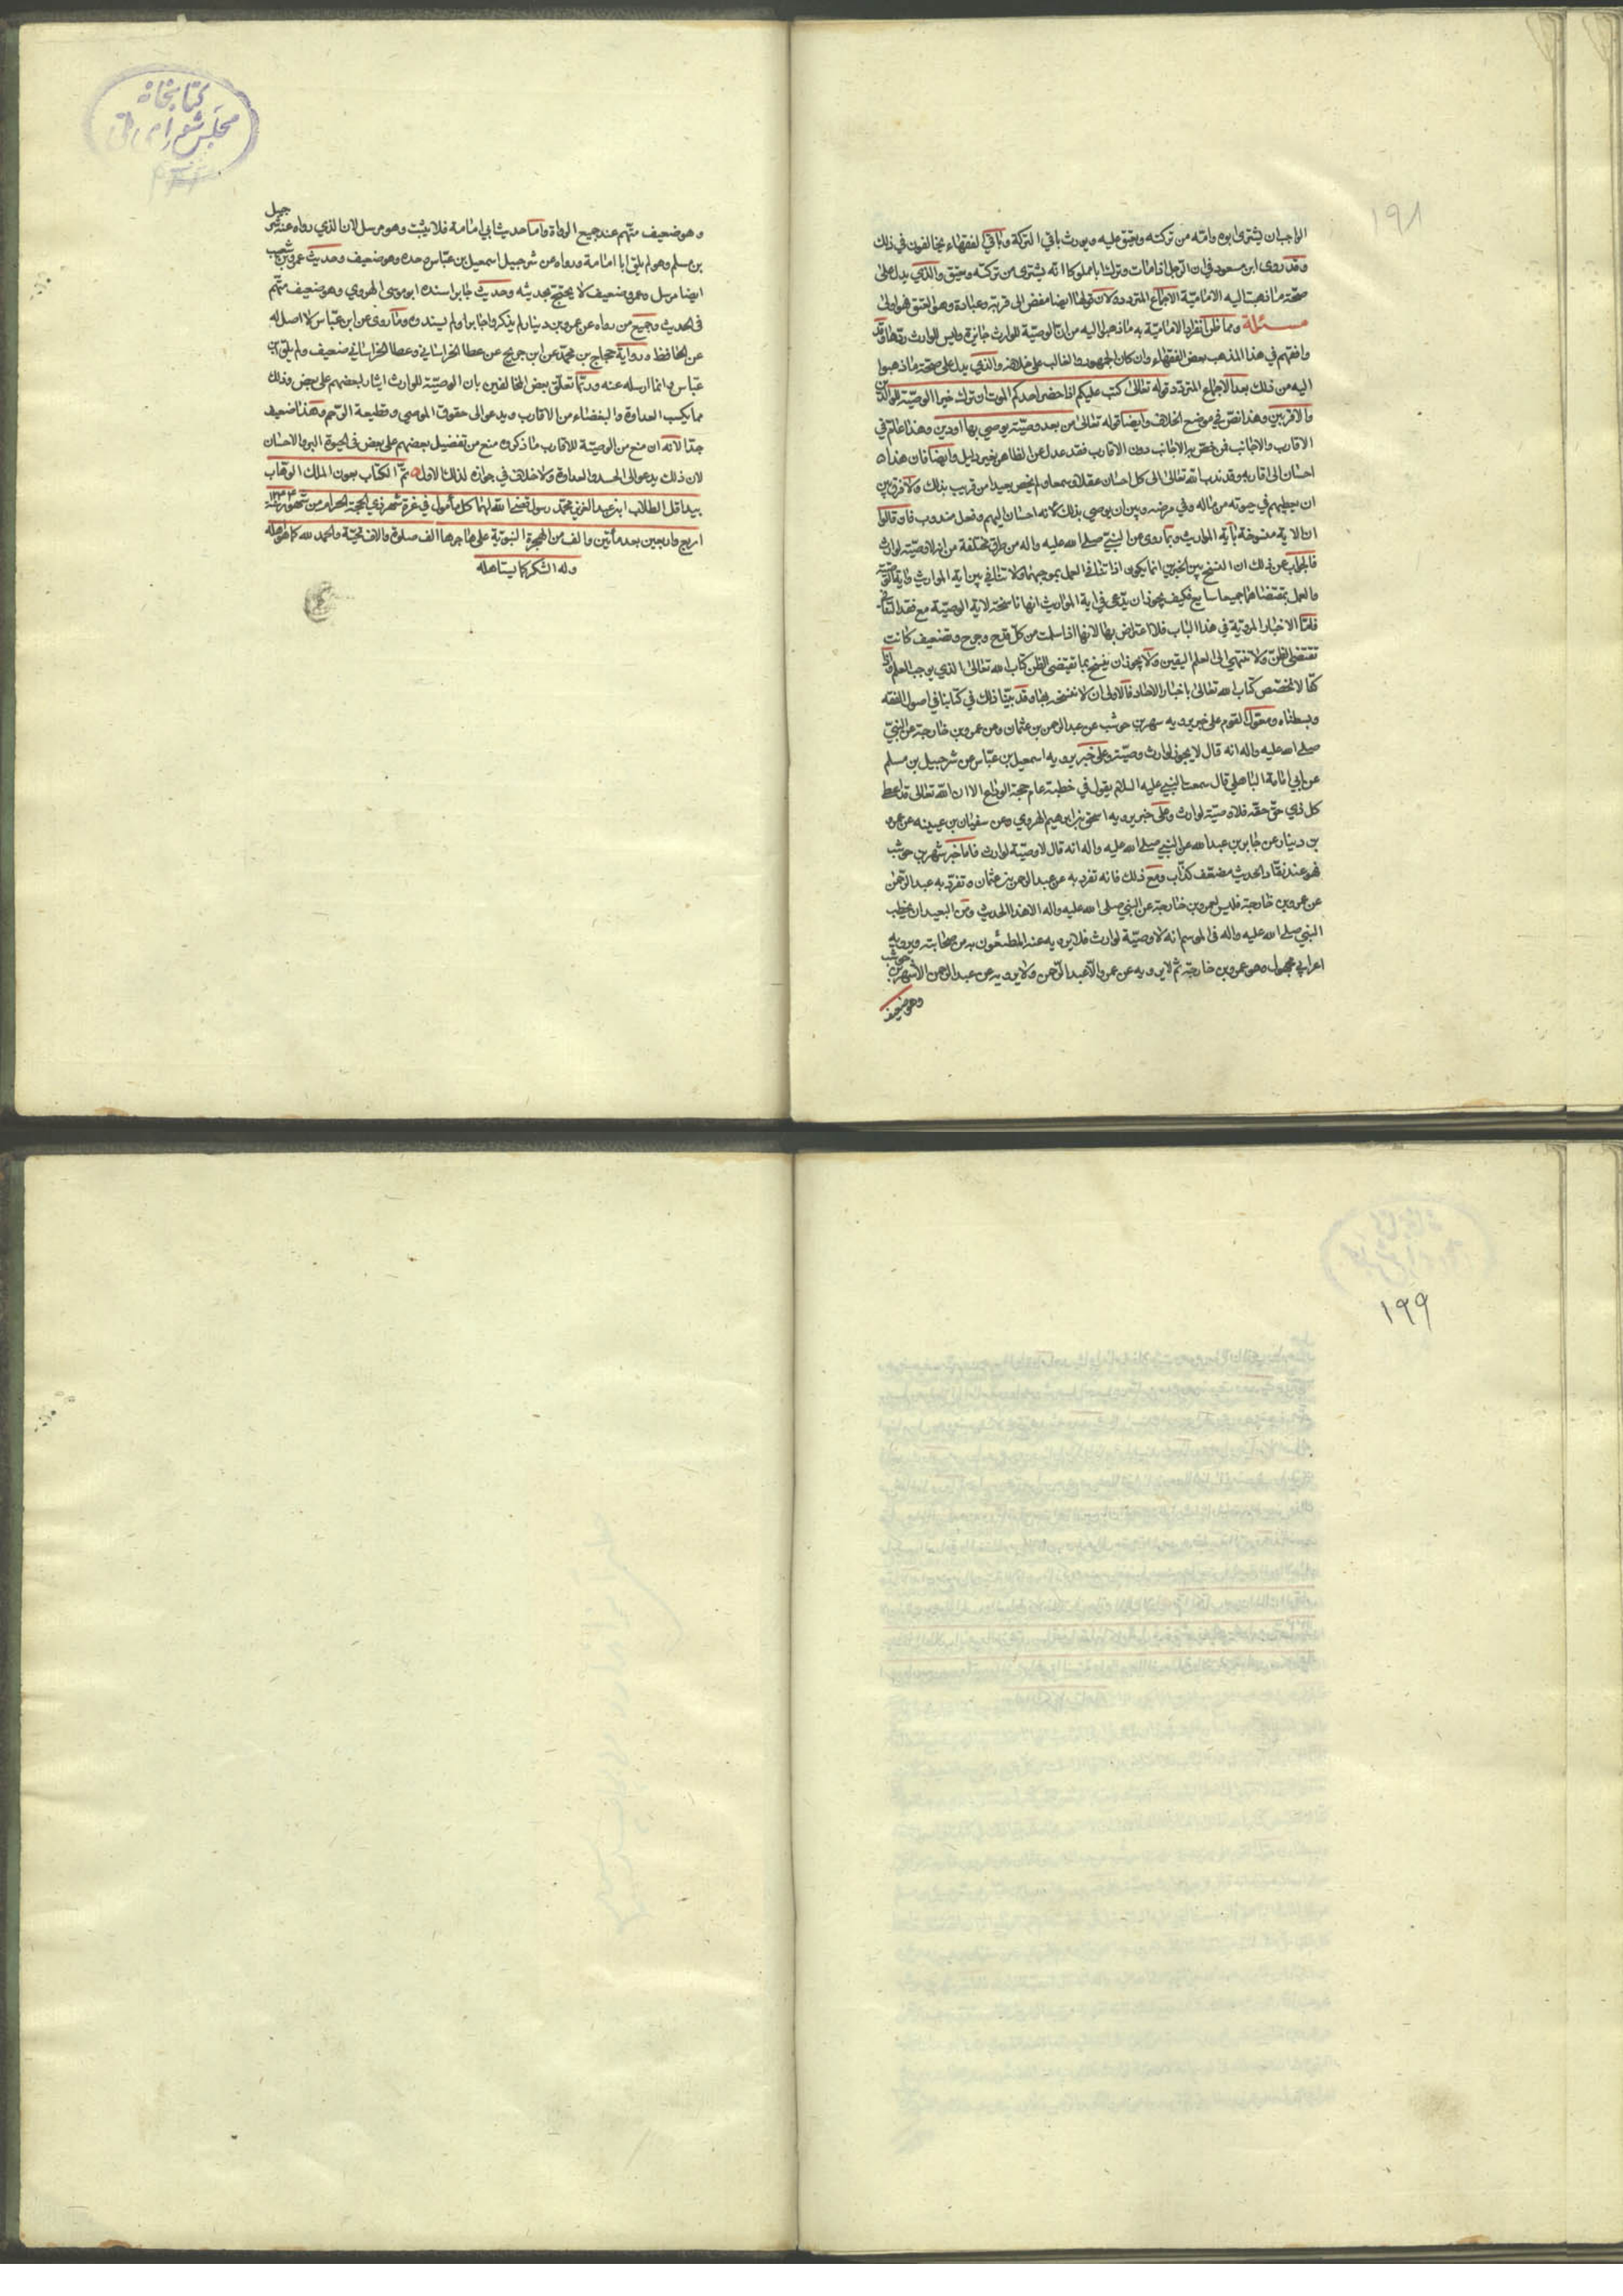 ١٩٨
الواجب ان يشترى ابوه وامّه من تركته ويعتق عليه ويورث باقي التركة وباقي الفقهاء يخالفون في ذلك
وقد روى ابن مسعود في ان الرجل اذا مات وترك ابا مملوكا انه يشترى من تركته ويعتق والذي يدل على
صحّة ما ذهبت اليه الاماميّة الاجماع المتردد ولان قولنا ايضا مفض الى قربة وعبادة وهو العتق فهو اولى
مسئلة ومما ظن انفراد الاماميّة به ما ذهبوا اليه من ان الوصيّة للوارث جايزة وليس للوارث ردّها وقد
وافقهم في هذا المذهب بعض الفقهاء وان كان الجمهور والغالب على خلافه والذي يدل على صحة ما ذهبوا
اليه من ذلك بعد الاجماع المتردد قوله تعالى كتب عليكم اذا حضر احدكم الموت ان ترك خيرا الوصيّة للوالدين
والاقربين وهذا نصّ في موضع الخلاف وايضا قوله تعالى من بعد وصيّة يوصي بها او دين وهذا عامّ في
الاقارب والاجانب فمن خصّ به الاجانب دون الاقارب فقد عدل عن الظاهر بغير دليل وايضا فان هذا
احسان الى اقاربه وقد ندب الله تعالى الى كل احسان عقلا وسمعا ولم يخص بعيدا من قريب بذلك ولا فرق بين
ان يعطيهم في حيوته من ماله وفي مرضه وبين ان يوصي بذلك لانه احسان اليهم وفعل مندوب فان قالوا
ان الاية منسوخة بآية المواريث وبما روى عن النبيّ صلى الله عليه واله من طرق مختلفة من انه لا وصيّة لوارث
فالجواب عن ذلك ان النسخ بين الخبرين انما يكون اذا تنافى العمل بموجبهما ولا تنافي بين اية المواريث واية الوصيّة
والعمل بمقتضاهما جميعا سايغ فكيف يجوز ان يدّعى في اية المواريث انها ناسخة لاية الوصيّة مع فقد التنافي
فامّا الاخبار المرويّة في هذا الباب فلا اعتراض بها لانها اذا سلمت من كلّ قدح وجرح وتضعيف كانت
تقتضي الظنّ ولا تنتهي الى العلم اليقين ولا يجوز ان ينسخ بما يقتضي الظن كتاب الله تعالى الذي يوجب العلم واذا
كنّا لا نخصّص كتاب الله تعالى باخبار الاحاد فالاولى ان لا ننسخه بها وقد بيّنا ذلك في كتابنا في اصول الفقه
وبسطناه ومعول القوم على خبر يرويه شهر بن حوشب عن عبد الرحمن بن عثمان وعن عمرو بن خارجة عن النبيّ
صلى الله عليه واله انه قال لا يجوز لوارث وصيّة وعلى خبر يرويه اسمعيل بن عبّاس عن شرحبيل بن مسلم
عن ابي امامة الباهلي قال سمعت النبي عليه السلام يقول في خطبته عام حجة الوداع الا ان الله تعالى قد اعطى
كل ذي حقّ حقّه فلا وصيّة لوارث وعلى خبر يرويه اسحق بن ابرهيم الهروي وعن سفيان بن عيينه عن عمرو
بن دينار عن جابر بن عبد الله عن النبي صلى الله عليه واله انه قال لا وصيّة لوارث فاما خبر شهر بن حوشب
فهو عند نقّاد الحديث مضعّف كذّاب ومع ذلك فانه تفرد به عن عبد الرحمن بن عثمان وتفرّد به عبد الرّحمن
عن عمرو بن خارجة فليس لعمرو بن خارجة عن النبي صلى الله عليه واله الا هذا الحديث ومن البعيد ان يخطب
النبي صلى الله عليه واله في الموسم انه لا وصيّة لوارث فلا يرويه عنه المطنبون به من صحابته ويرويه
اعرابي مجهول وهو عمرو بن خارجة ثم لا يرويه عن عمرو الّا عبد الرّحمن ولا يرويه عن عبد الرحمن الا شهر بن حوشب
وهو ضعيف
كتابخانه
مجلس شورای ملی
وهو ضعيف متّهم عند جميع الرواة واما حديث ابي امامة فلا يثبت وهو مرسل لان الذي رواه عنه شرحبيل
بن مسلم وهو لم يلق ابا امامة ورواه عن شرحبيل اسمعيل بن عبّاس وحده وهو ضعيف وحديث عمرو بن شعيب
ايضا مرسل وعمرو ضعيف لا يحتجّ بحديثه وحديث جابر اسنده ابو موسى الهروي وهو ضعيف متّهم
في الحديث وجميع من رواه عن عمرو بن دينار لم يذكروا جابرا ولم يسندوه وما روى عن ابن عبّاس لا اصل له
عن الحافظ ورواية حجاج بن محمّد عن ابن جريج عن عطا الخراساني وعطا الخراساني ضعيف ولم يلق ابن
عبّاس وانما ارسله عنه وربّما تعلّق بعض المخالفين بان الوصيّة للوارث ايثار لبعضهم على بعض وذلك
مما يكسب العداوة والبغضاء من الاقارب ويدعو الى حقوق الموصي وقطيعة الرّحم وهذا ضعيف
جدّا لانّه ان منع من الوصيّة للاقارب ما ذكروه منع من تفضيل بعضهم على بعض في الحيوة البر والاحسان
لان ذلك يدعو الى الحسد والعداوة ولا خلاف في جوازه لذلك الاول تمّ الكتاب بعون الملك الوهّاب
بيد اقل الطلاب ابن عبد العزيز محمّد رسول قضا الله لهما كل مأمول في غرة شهر ذي الحجة الحرام من شهور سنة ١٢٤٤
اربع واربعين بعد مأتين والف من الهجرة النبويّة على هاجرها الف صلوة والاف تحيّة والحمد لله كما هو اهله
وله الشكر كما يستاهله
١٩٩